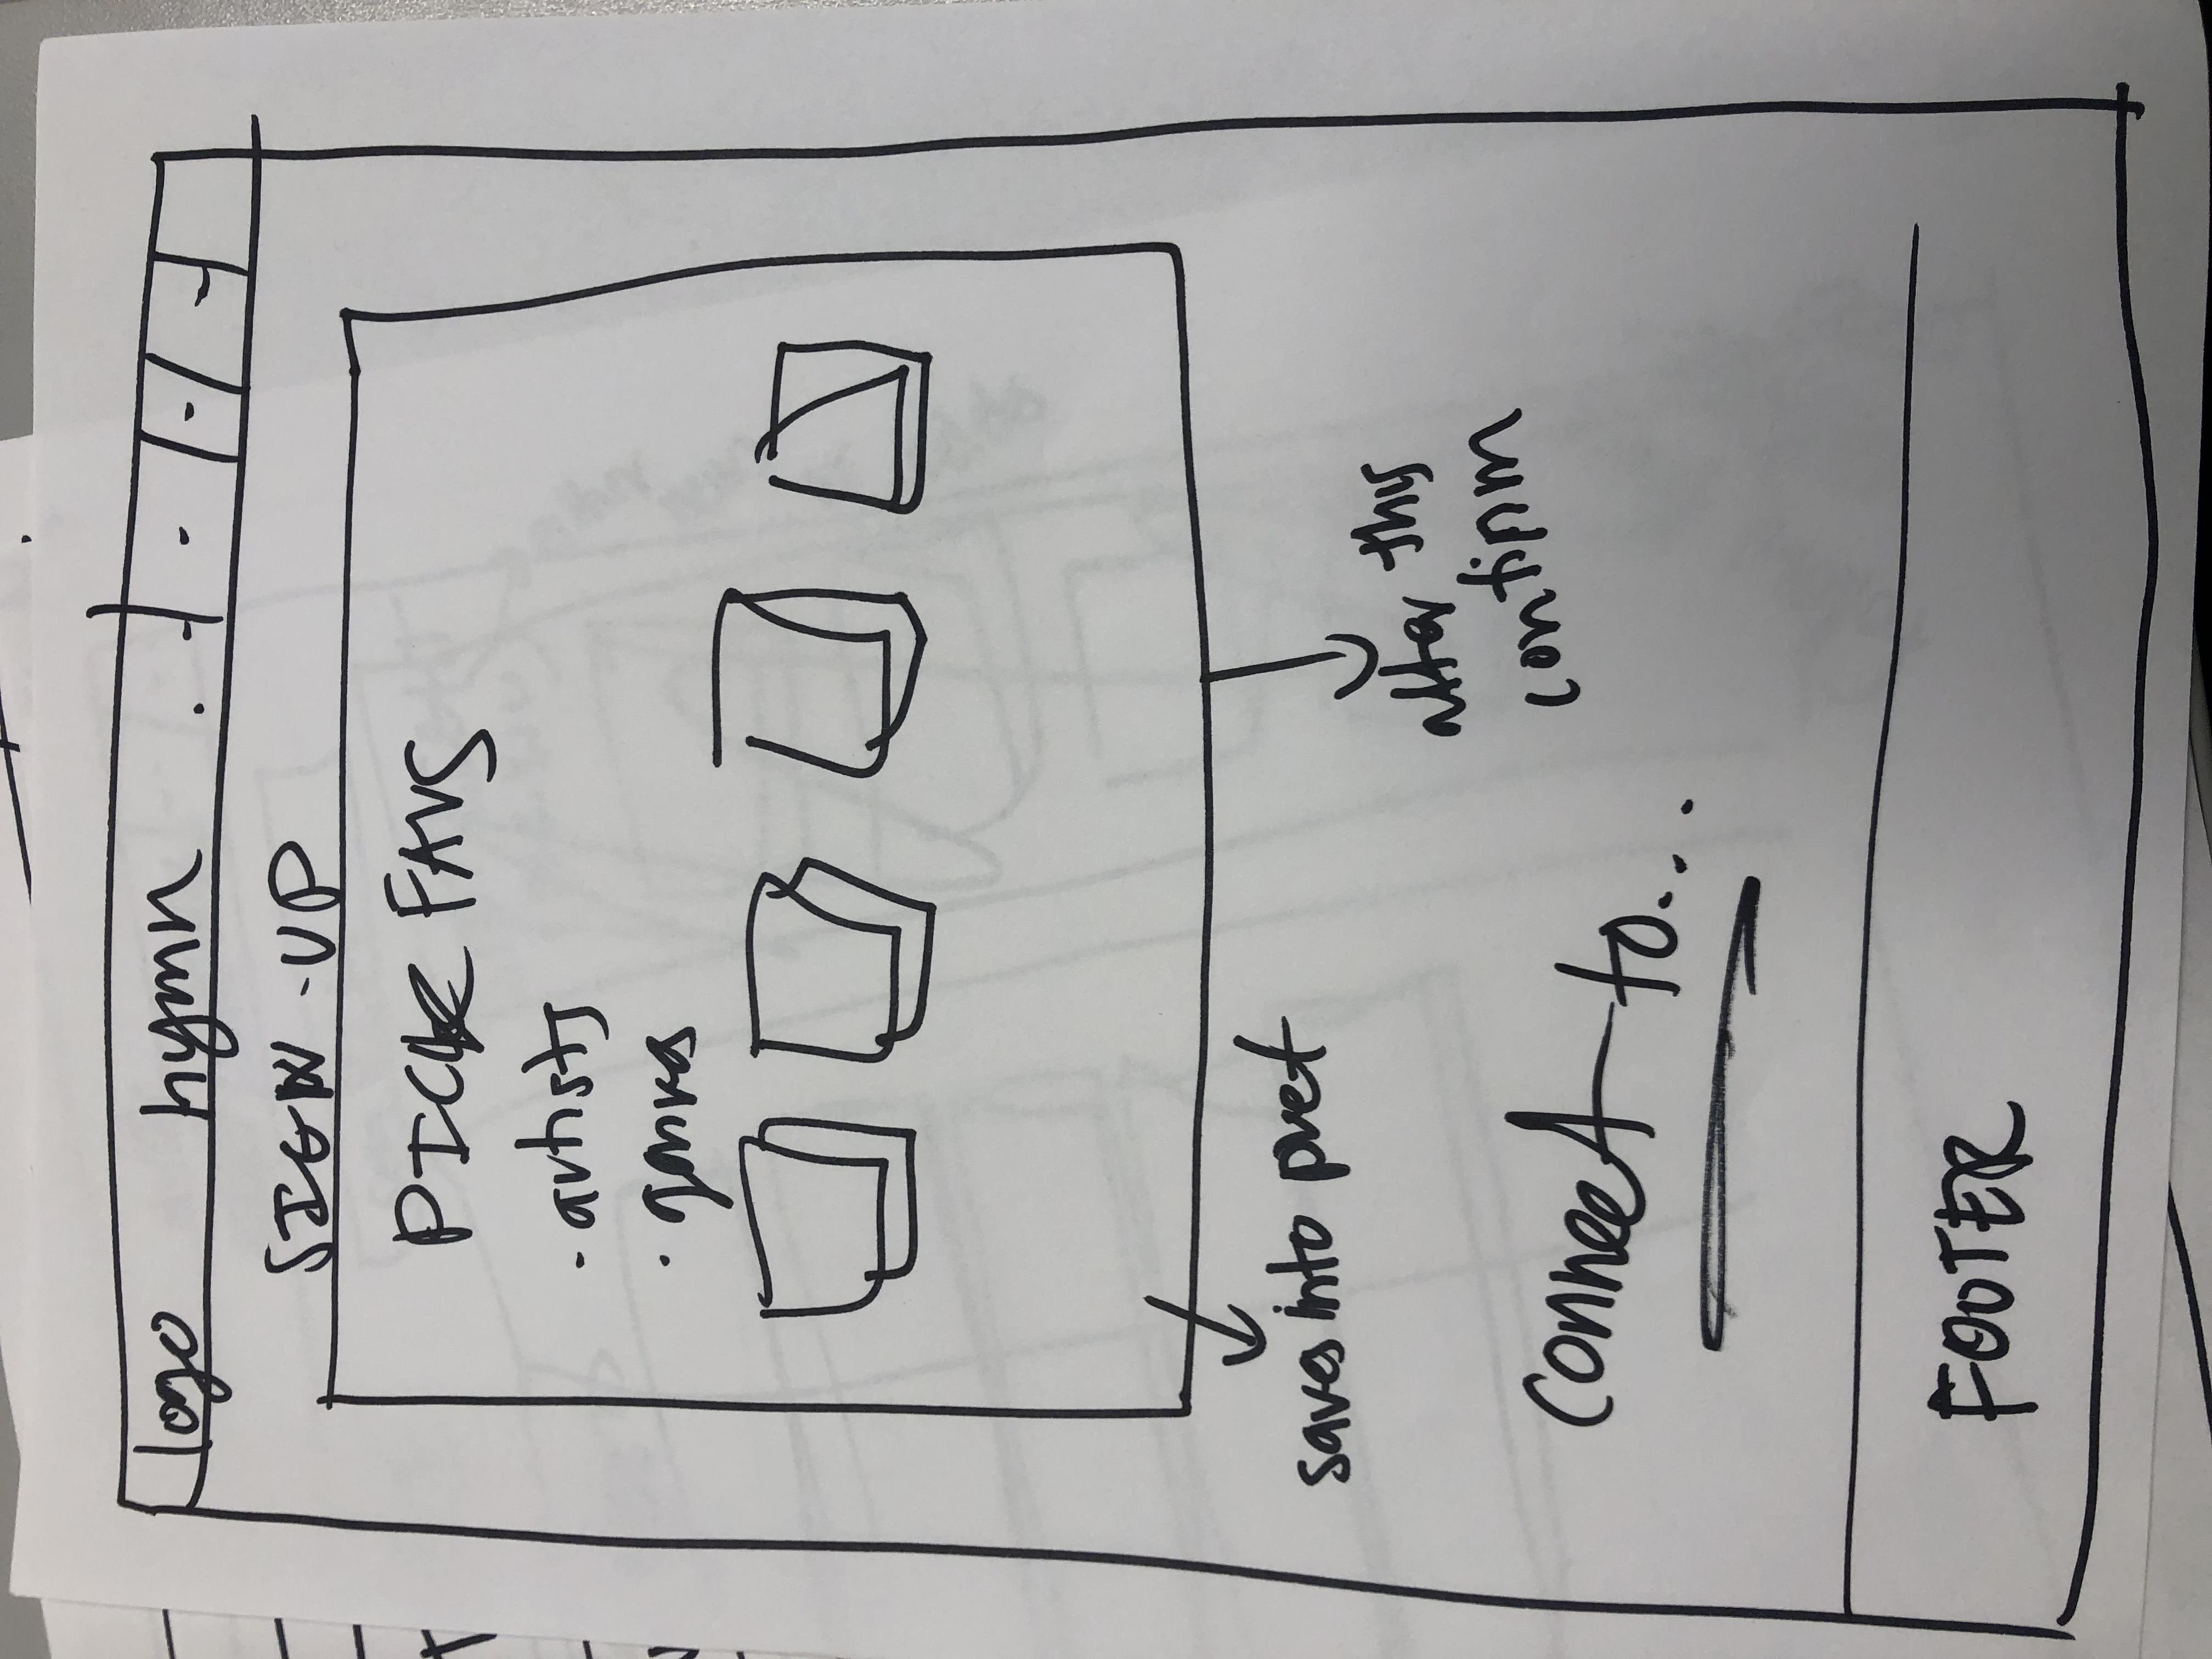 logo hymn
SIGN-UP
PICK FAVS
· artists
· genres
saves into pref
after this
confirm
Connect to...
FOOTER